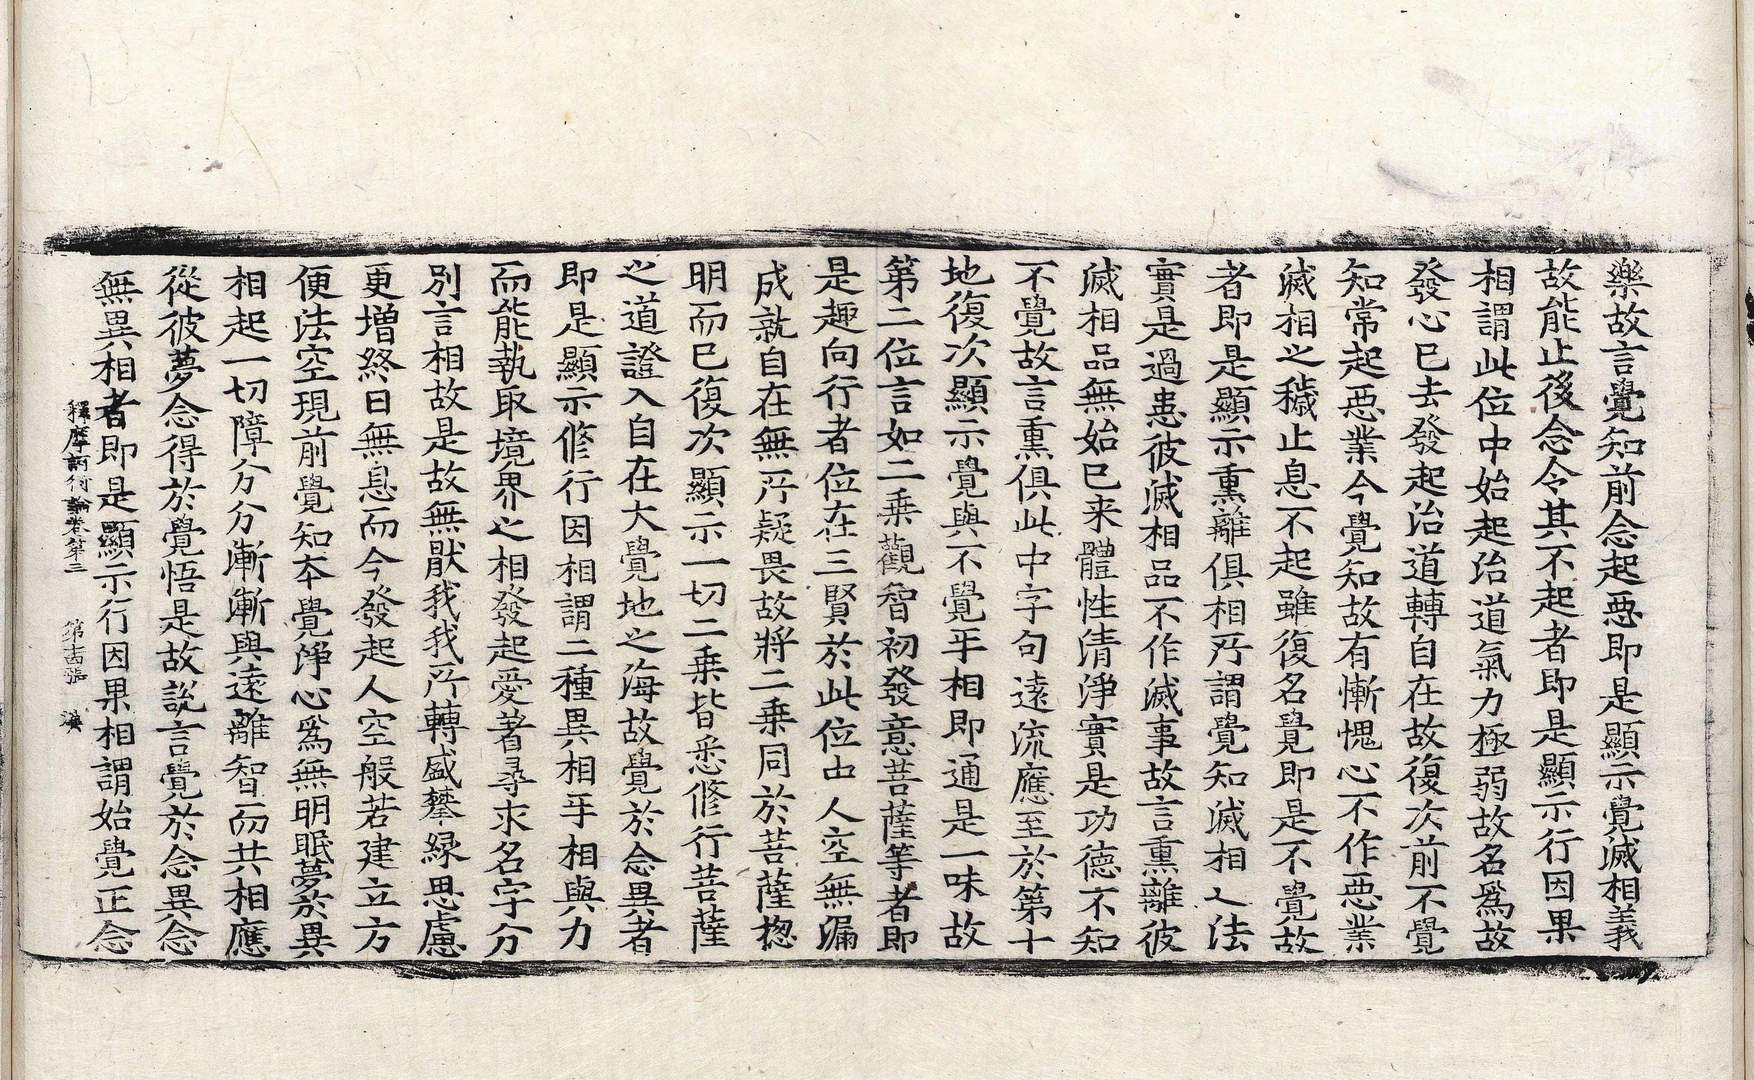 樂故言覺知前念起惡即是顯示覺滅相義
故能止後念令其不起者即是顯示行因果
相謂此位中始起治道氣力極弱故名爲故
發心已去發起治道轉自在故復次前不覺
知常起惡業今覺知故有慚愧心不作惡業
滅相之穢止息不起雖復名覺即是不覺故
者即是顯示熏離俱相所謂覺知滅相之法
實是過患彼滅相品不作滅事故言熏離彼
滅相品無始已来體性清淨實是功德不知
不覺故言熏俱此中字句遠流應至於第十
地復次顯示覺與不覺平相即通是一味故
第二位言如二乘觀智初發意菩薩等者即
是趣向行者位在三賢於此位由人空無漏
成就自在無所疑畏故將二乘同於菩薩揔
明而已復次顯示一切二乘皆悉修行菩薩
之道證入自在大覺地之海故覺於念異者
即是顯示修行因相謂二種異相平相與力
而能執取境界之相發起愛著尋求名字分
別言相故是故無猒我我所轉盛攀緣思慮
更增終日無息而今發起人空般若建立方
便法空現前覺知本覺淨心爲無明眠夢於異
相起一切障分分漸漸與遠離智而共相應
從彼夢念得於覺悟是故說言覺於念異念
無異相者即是顯示行因果相謂始覺正念
釋摩訶衍論卷第三　第十四張　漢